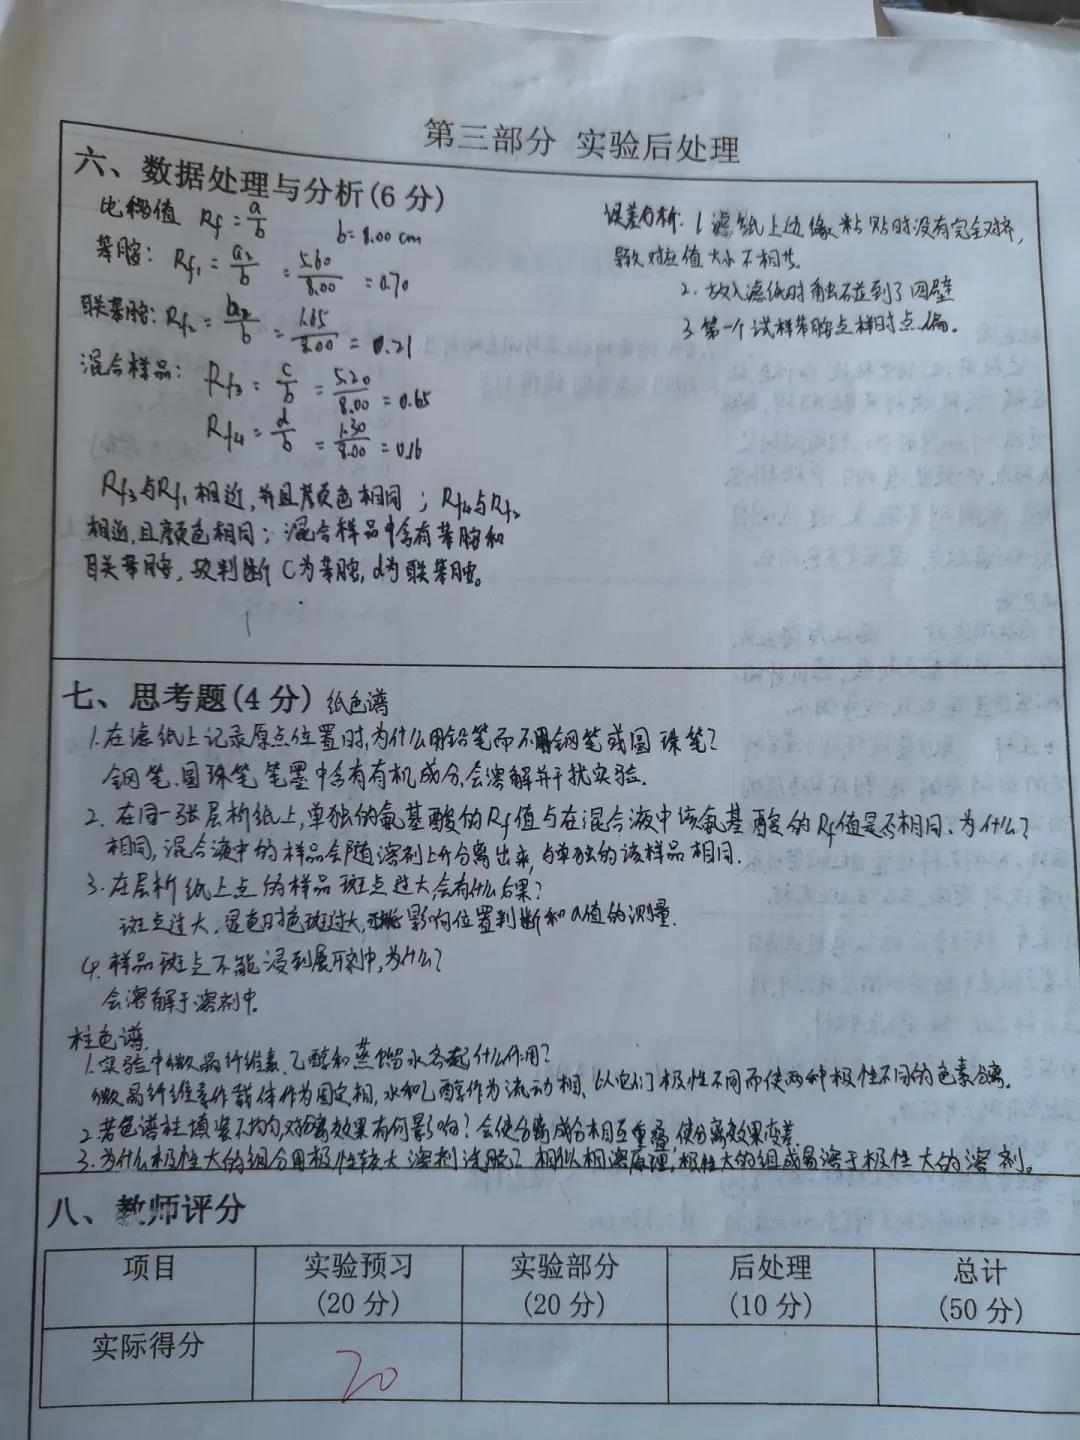 第三部分 实验后处理
六、数据处理与分析(6分)
比移值 Rf = a/b b=8.00cm
苯胺: Rf₁ = a₂/b = 5.60/8.00 = 0.70
联苯胺: Rf₂ = b₂/b = 1.65/8.00 = 0.21
混合样品: Rf₃ = c/b = 5.20/8.00 = 0.65
Rf₄ = d/b = 1.30/8.00 = 0.16
Rf₃与Rf₁相近,并且颜色相同;Rf₄与Rf₂
相近,且颜色相同;混合样品中含有苯胺和
联苯胺,故判断C为苯胺,d为联苯胺。
误差分析:1.滤纸上边缘粘贴时没有完全对齐,
导致对应值大小不相共
2.放入滤纸时触碰到了四壁
3.第一个试样苯胺点样时点偏。
七、思考题(4分) 纸色谱
1.在滤纸上记录原点位置时,为什么用铅笔而不用钢笔或圆珠笔?
钢笔.圆珠笔笔墨中含有有机成分,会溶解并干扰实验.
2.在同一张层析纸上,单独的氨基酸的Rf值与在混合液中该氨基酸的Rf值是否相同、为什么?
相同,混合液中的样品会随溶剂上升分离出来,与单独的该样品相同.
3.在层析纸上点的样品斑点过大,会有什么后果?
斑点过大,显色时色斑过大,影响位置判断和a值的测量.
4.样品斑点不能浸到展开剂中,为什么?
会溶解于溶剂中.
柱色谱.
1.实验中微晶纤维素.乙醇和蒸馏水各起什么作用?
微晶纤维素作载体作为固定相,水和乙醇作为流动相、以它们极性不同而使两种极性不同的色素分离.
2.若色谱柱填装不均匀,对分离效果有何影响?会使分离成分相互重叠,使分离效果变差.
3.为什么极性大的组分用极性较大溶剂洗脱?相似相溶原理,极性大的组成易溶于极性大的溶剂。
八、教师评分
项目 实验预习 实验部分 后处理 总计
(20分) (20分) (10分) (50分)
实际得分 20